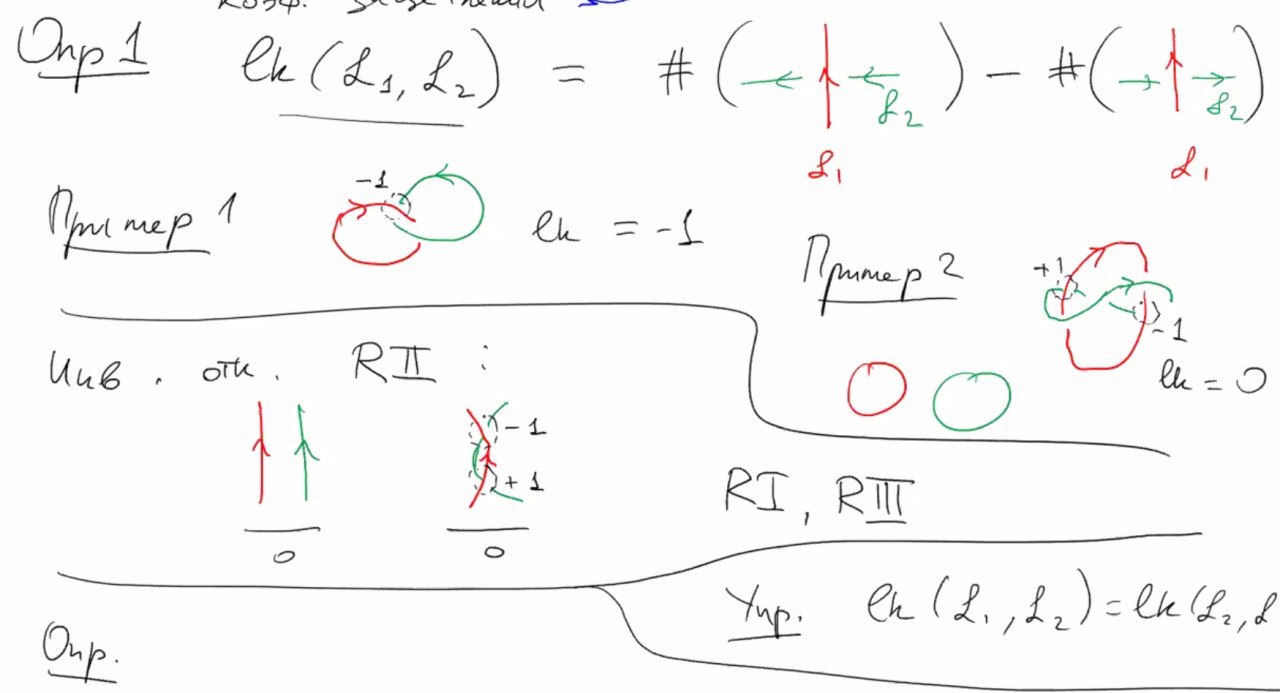 коэф. зацепления
Опр 1 lk(L₁, L₂) = #( L₂ ) − #( L₂ )
L₁ L₁
Пример 1 -1 lk = -1
Пример 2 +1 -1
lk = 0
Инв. отн. RII :
-1
+1
0 0
RI, RIII
Упр. lk(L₁, L₂) = lk(L₂, L
Опр.